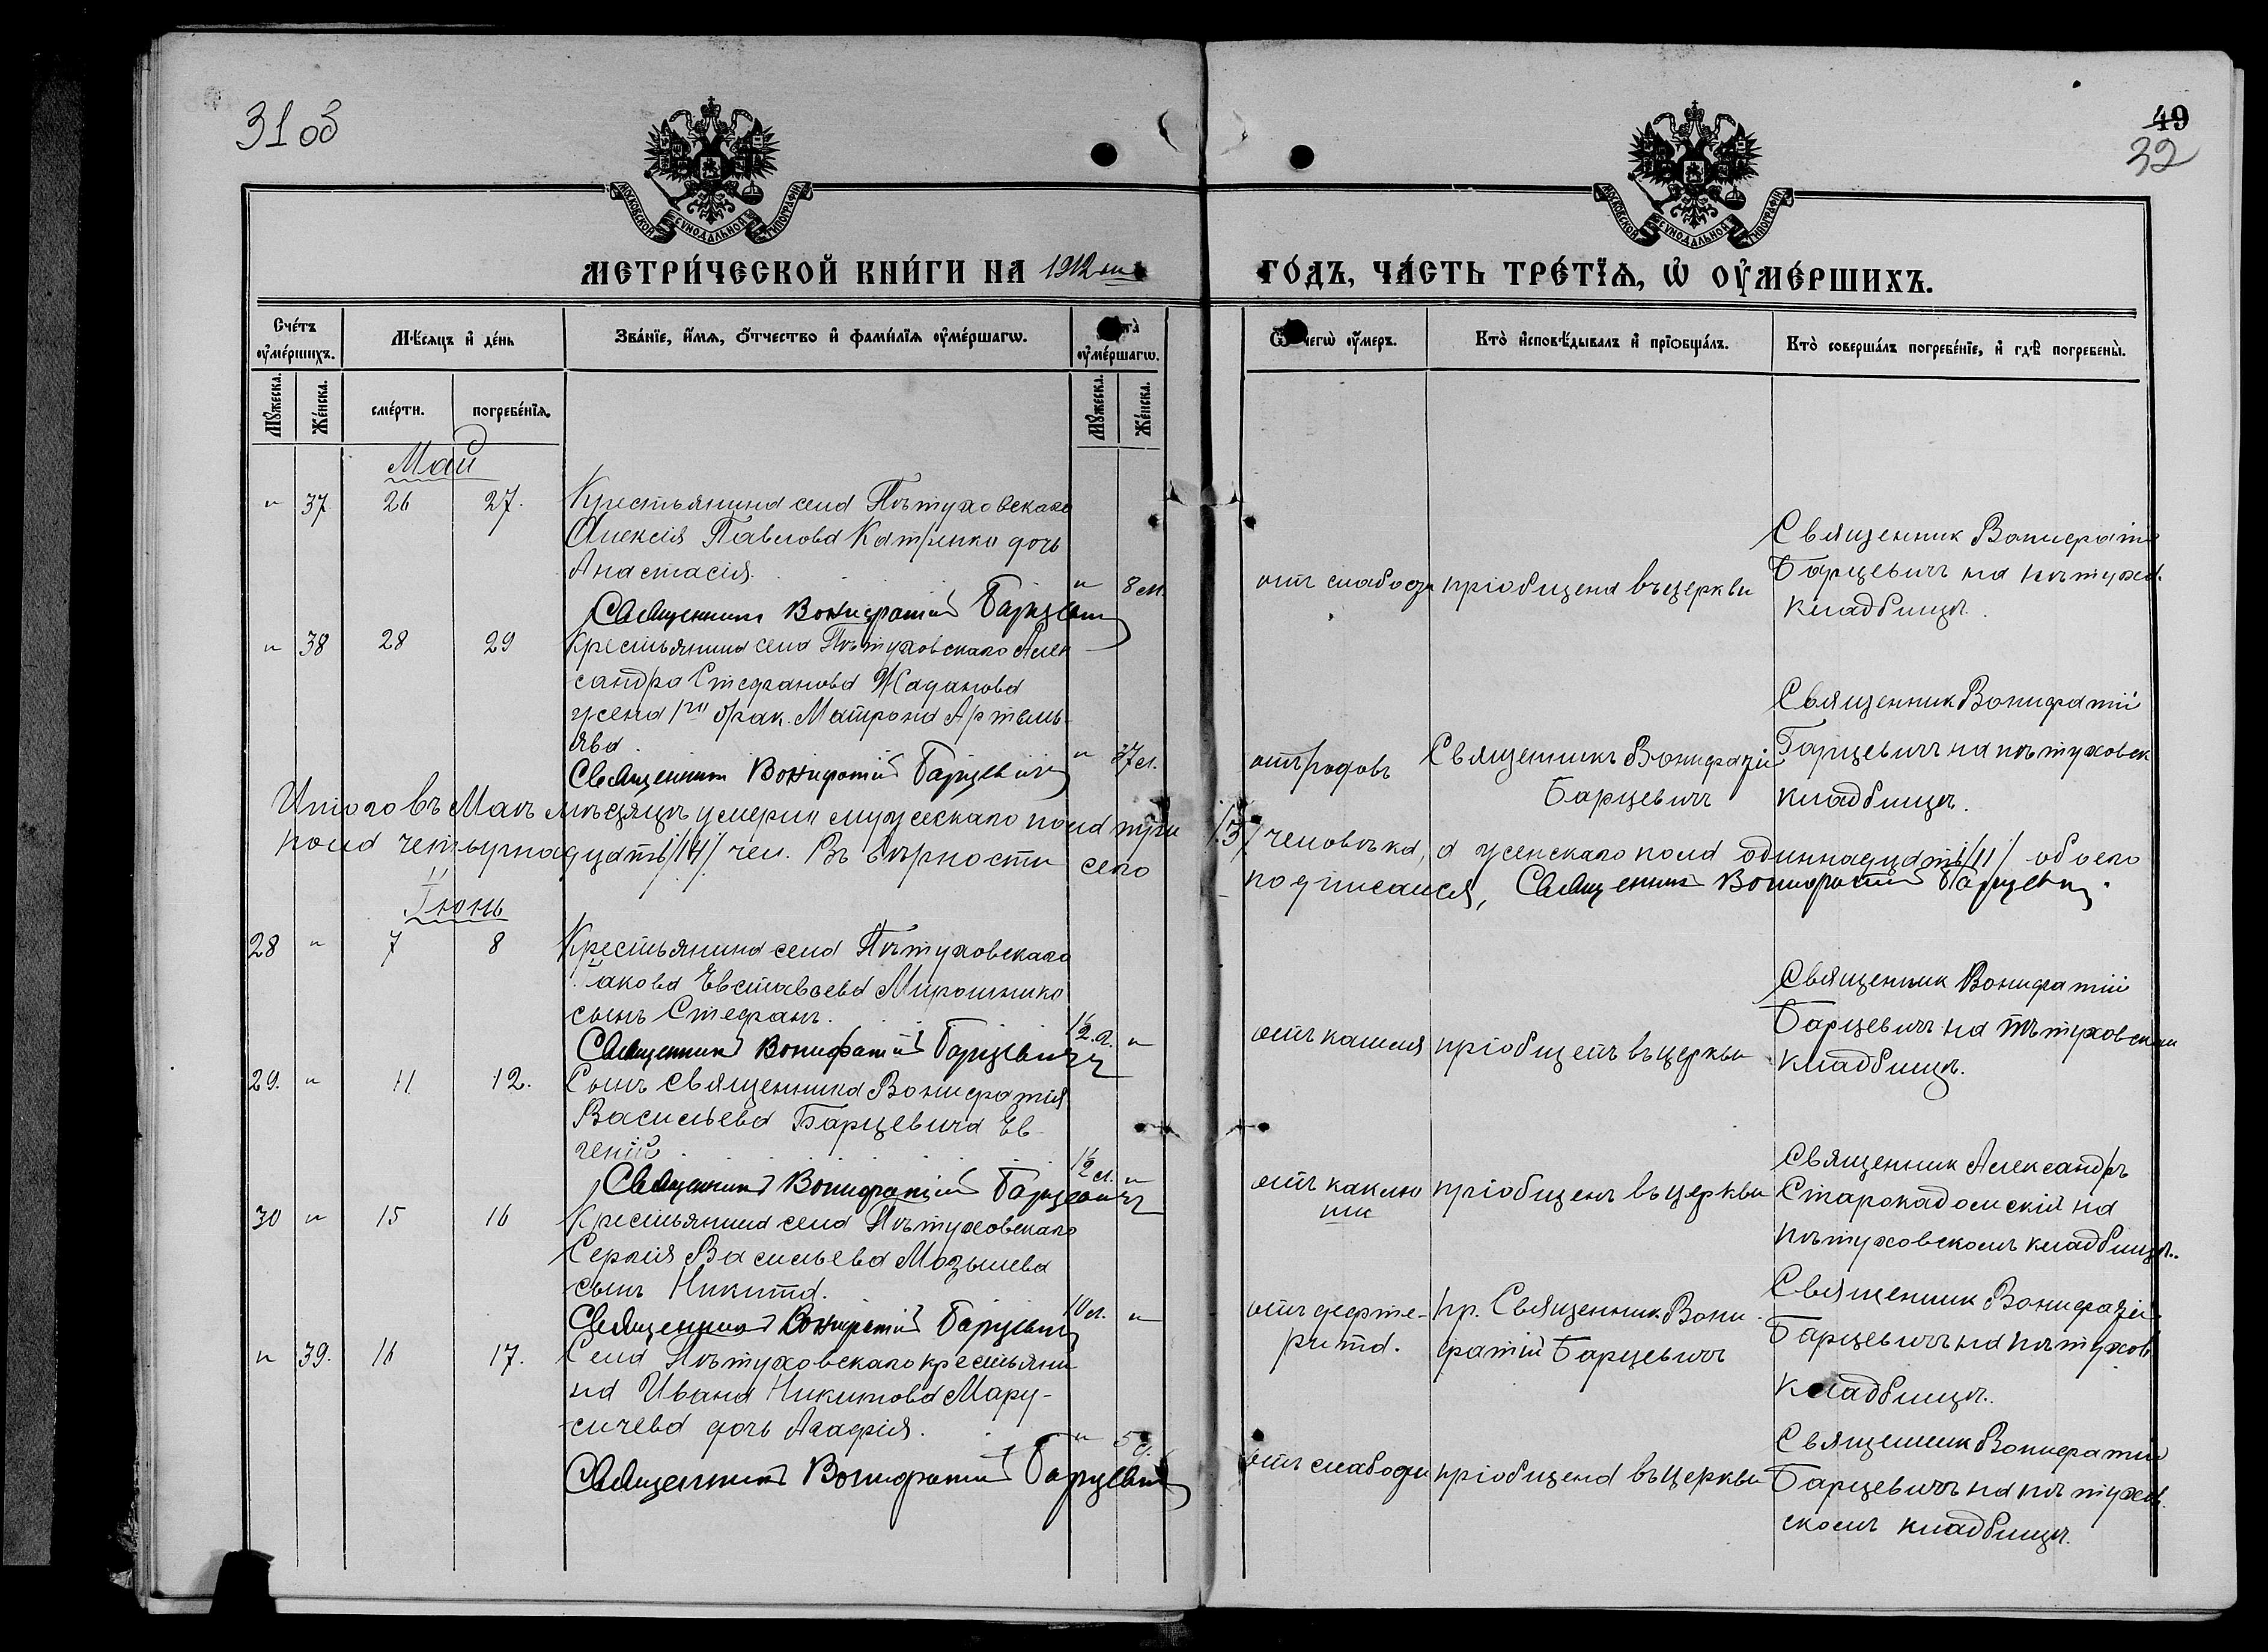 31 об
49
32
МОСКОВСКОЙ СѴНОДАЛЬНОЙ ТИПОГРАФІИ
МОСКОВСКОЙ СѴНОДАЛЬНОЙ ТИПОГРАФІИ
МЕТРИ́ЧЕСКОЙ КНИ́ГИ НА 1912 ый
ГО́ДЪ, ЧА́СТЬ ТРЕ́ТЇѦ, Ѡ҆ ОУ҆МЕ́РШИХЪ.
Сче́тъ оу҆ме́ршихъ.
Мѣ́сяцъ и҆ де́нь
Зва́нїе, и҆́мѧ, ѻ҆́тчество и҆ фами́лїѧ оу҆ме́ршагѡ.
оу҆ме́ршагѡ.
оу҆́меръ.
Кто̀ и҆сповѣ́дывалъ и҆ прїѡбща́лъ.
Кто̀ соверша́лъ погребе́нїе, и҆ гдѣ̀ погребены̀.
Мꙋ́жеска.
Же́нска.
сме́рти.
погребе́нїѧ.
Мꙋ́жеска.
Же́нска.
Май
" 37 26 27. Крестьянина села Пѣтуховскаго
Алексія Павлова Катренко дочь
Анастасія. " 8 м.
Священникъ Вонифатій Барцевичъ
отъ слабости
пріобщена въ церкви
Священник Вонифатій
Барцевичъ на пѣтухов.
кладбищѣ.
" 38 28 29 Крестьянина села Пѣтуховскаго Алек
сандра Стефанова Жаданова
жена 1го брак. Матрона Артемь
ева. " 37 л.
Священникъ Вонифатій Барцевичъ
отъ родовъ
Священникъ Вонифатій
Барцевичъ
Священник Вонифатій
Барцевичъ на пѣтуховск
кладбищѣ.
Итого въ Маѣ мѣсяцѣ умерли мужескаго пола три /3/ человѣка, а женскаго пола одиннадцать /11/ обоего
пола четырнадцать /14/ чел. Въ вѣрности сего подписался, Священникъ Вонифатій Барцевичъ.
Іюнь
28 " 7 8 Крестьянина села Пѣтуховскаго
Іакова Евстафьева Мирошнико
сынъ Стефанъ. "
Священникъ Вонифатій Барцевичъ
отъ кашля
пріобщенъ въ церкви
Священник Вонифатій
Барцевичъ на Пѣтуховском
кладбищѣ.
29. " 11 12. Сынъ священника Вонифатія
Васильева Барцевича Ев
геній "
Священникъ Вонифатій Барцевичъ
отъ каклю
ши
пріобщенъ въ церкви
Священник Александръ
Старокадомскій на
Пѣтуховскомъ кладбищѣ.
30 " 15 16 Крестьянина села Пѣтуховскаго
Сергія Васильева Мозылева
сынъ Никита. 10 л. "
Священникъ Вонифатій Барцевичъ
отъ дефте-
рита.
пр. Священник Вони
фатій Барцевичъ
Священник Вонифатій
Барцевичъ на пѣтухов
кладбищѣ.
" 39. 16 17. Села Пѣтуховскаго крестьяни
на Ивана Никитова Мару-
сичева дочь Агафія. " 5 д.
Священникъ Вонифатій Барцевичъ
отъ слабости
пріобщена въ церкви
Священник Вонифатій
Барцевичъ на пѣтухов
скомъ кладбищѣ.